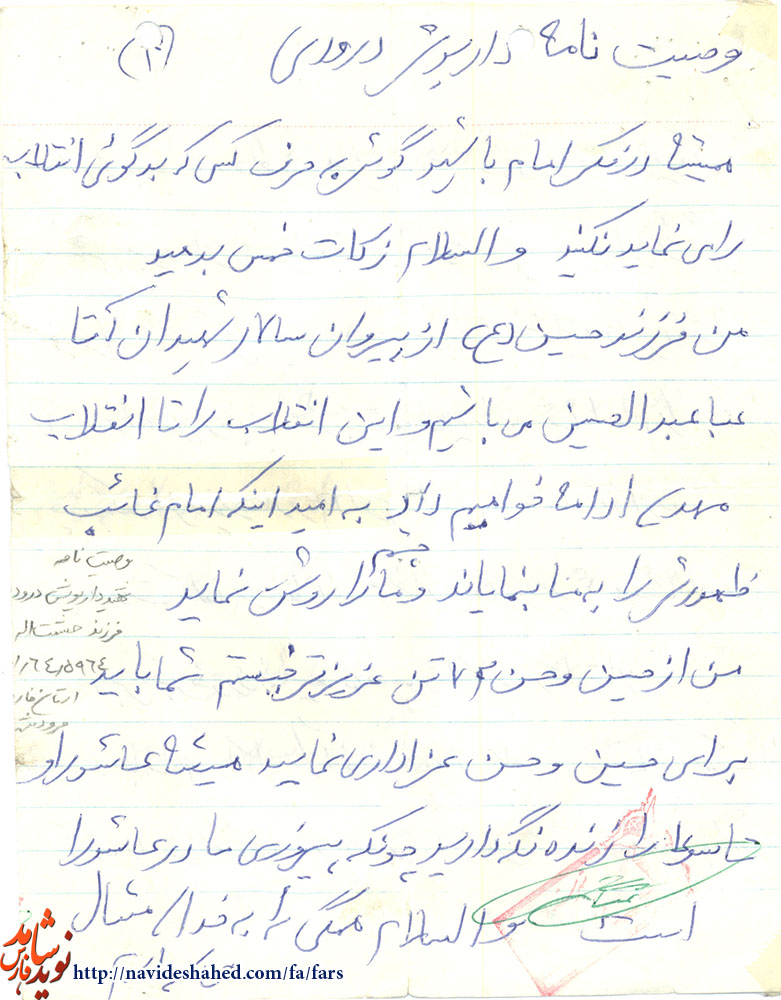 وصیت نامه داریوش درودی (۱۰)
همیشه در فکر امام باشید گوش به حرف کسی که بدگوئی انقلاب
رامی نماید نکنید والسلام زکات خمس بدهید
من فرزند حسین (ع) از پیروان سالار شهیدان آقا
عبا عبدالحسین می باشیم و این انقلاب را تا انقلاب
مهدی ادامه خواهیم داد به امید اینکه امام غائب
ظهورش را به ما بنمایاند و چشم ما را روشن نماید
من از حسین و حسن ۷۲ تن عزیزتر نیستم شما باید
برای حسین و حسن عزاداری نمایید همیشه عاشورا و
تاسوعا را زنده نگه دارید چونکه پیروزی ما در عاشورا
است والسلام همگی را به خدای متعال
وصیت نامه
شهید داریوش درود
فرزند حشمت اله
استان فار
مرودشت
نوید شاهد فارس
http://navideshahed.com/fa/fars